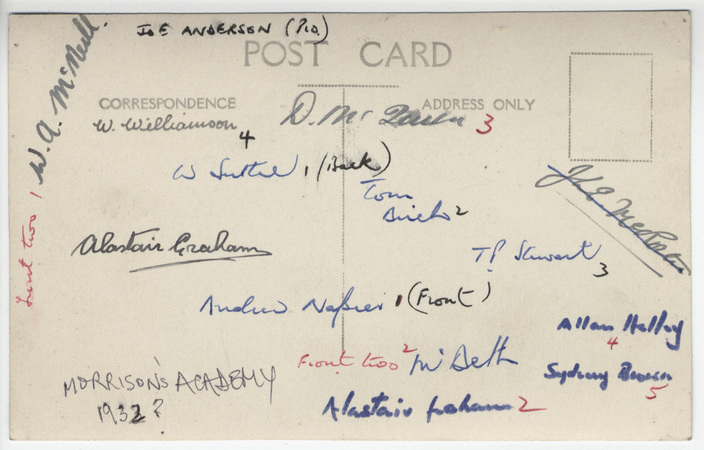 JOE ANDERSON (Pro)
POST CARD
W. A. McNeill.
CORRESPONDENCE
ADDRESS ONLY
W. Williamson 4
D. Mc 3
W 1 (Back)
Tom
2
Alastair Graham
T P Stewart 3
front two 1
Andrew Napier 1 (Front)
Allan Halley
4
Front two 2 McBeth
Sydney Brown
5
MORRISON'S ACADEMY
1932?
Alastair Graham 2